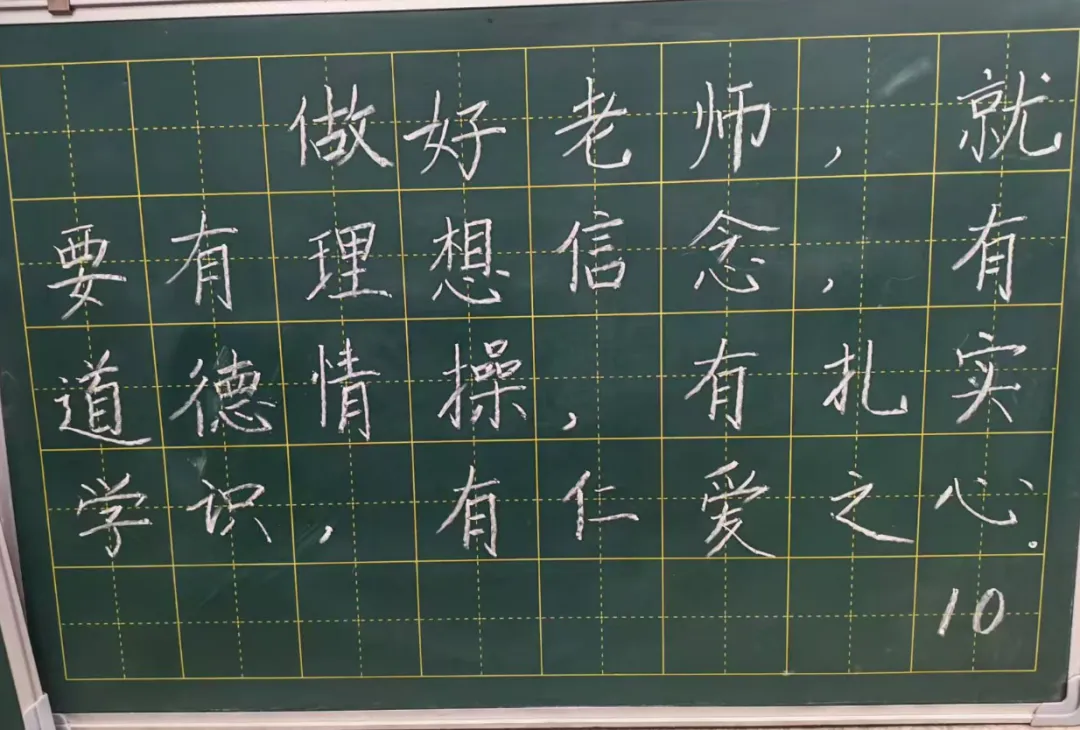 做好老师,就
要有理想信念,有
道德情操,有扎实
学识,有仁爱之心.
10